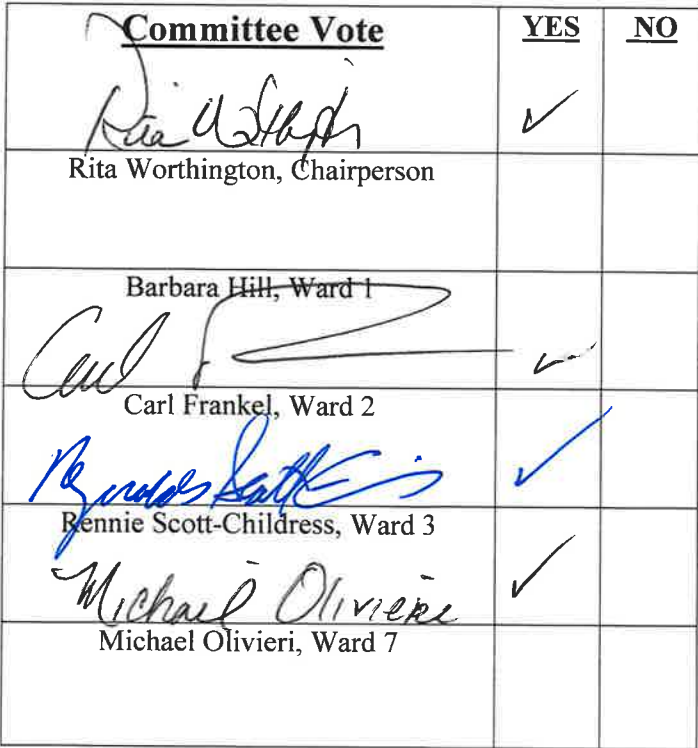 Committee Vote YES NO
Rita Worthington ✓
Rita Worthington, Chairperson
Barbara Hill, Ward 1
Carl ✓
Carl Frankel, Ward 2
✓
Rennie Scott-Childress, Ward 3
Michael Olivieri ✓
Michael Olivieri, Ward 7